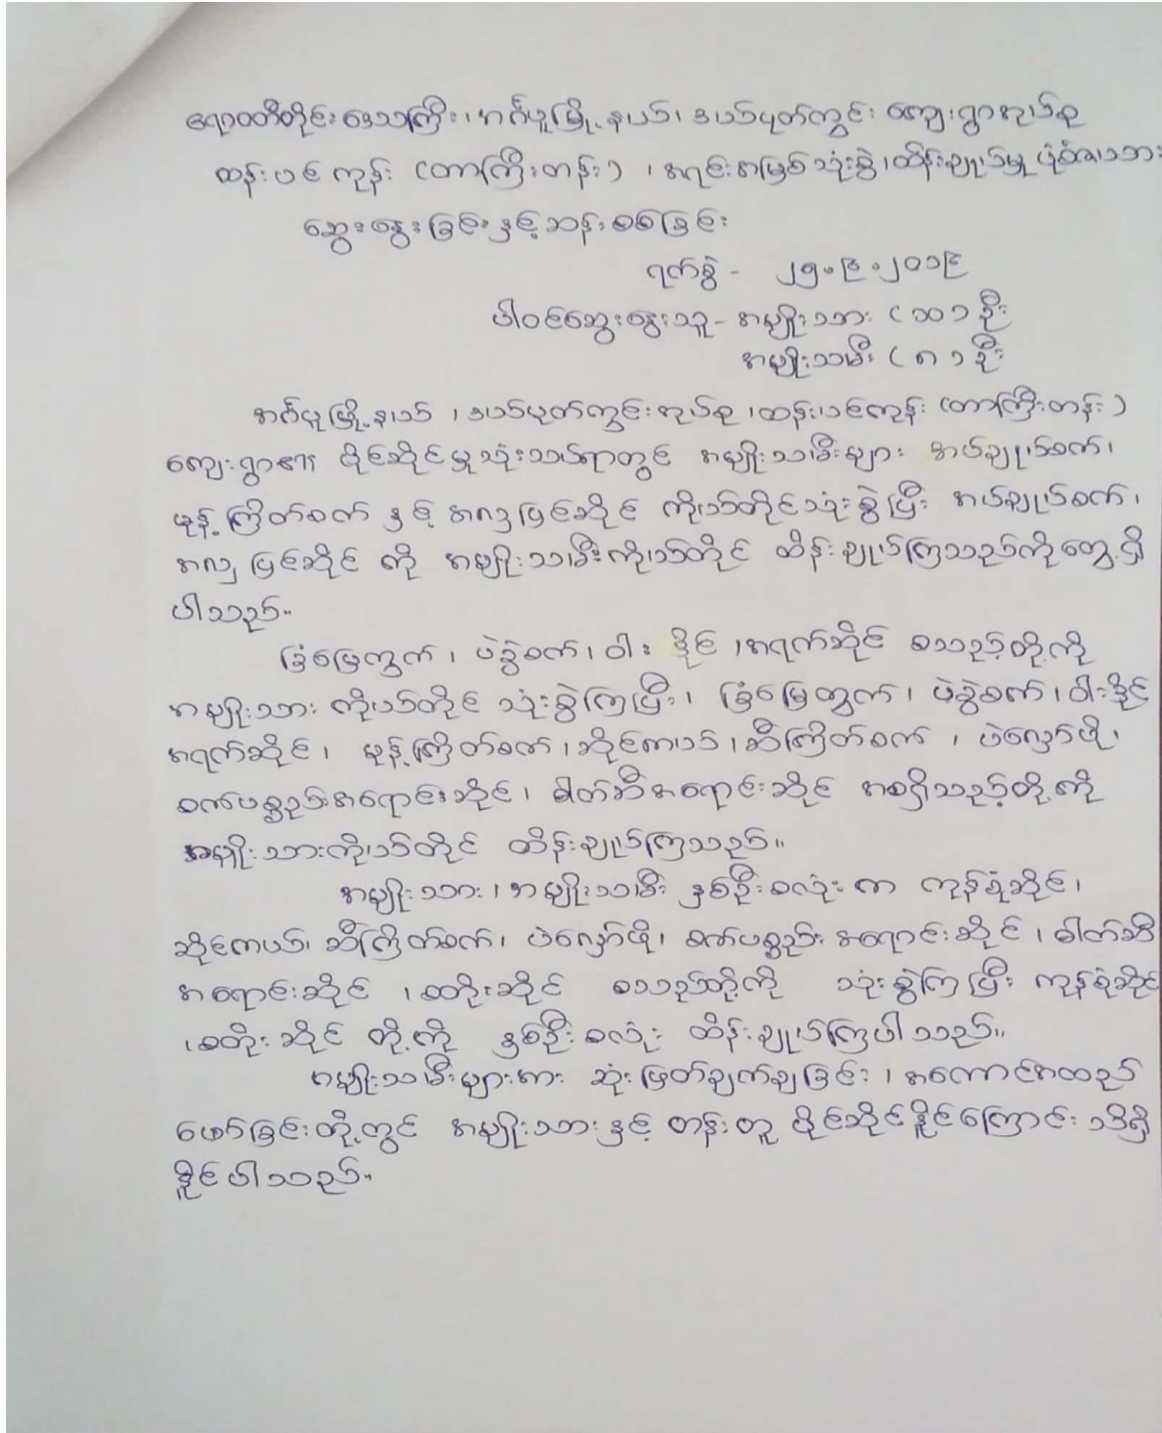 ဧရာဝတီတိုင်းဒေသကြီး၊ အင်္ဂပူမြို့နယ်၊ ဒယ်ပုတ်ကွင်း ကျေးရွာအုပ်စု
ထန်းပင်ကုန်း (တာကြီးတန်း) ၊ အရင်းအမြစ်သုံးစွဲ၊ ထိန်းချုပ်မှု ပုံစံအား
ဆွေးနွေးခြင်းနှင့်ဆန်းစစ်ခြင်း
ရက်စွဲ - ၂၅.၉.၂၀၁၉
ပါဝင်ဆွေးနွေးသူ - အမျိုးသား (၁၀) ဦး
အမျိုးသမီး (၈) ဦး
အင်္ဂပူမြို့နယ် ၊ ဒယ်ပုတ်ကွင်းအုပ်စု ၊ ထန်းပင်ကုန်း (တာကြီးတန်း)
ကျေးရွာ၏ ပိုင်ဆိုင်မှုသုံးသပ်ရာတွင် အမျိုးသမီးများ အပ်ချုပ်စက်၊
မုန့်ကြိတ်စက် နှင့် အလှပြင်ဆိုင် ကိုယ်တိုင်သုံးစွဲပြီး အပ်ချုပ်စက်၊
အလှပြင်ဆိုင် ကို အမျိုးသမီးကိုယ်တိုင် ထိန်းချုပ်ကြသည်ကိုတွေ့ရှိ
ပါသည်။
ခြံမြေကွက် ၊ ပဲခွဲစက် ၊ ဝါးဒိုင် ၊ အရက်ဆိုင် စသည့်တို့ကို
အမျိုးသား ကိုယ်တိုင် သုံးစွဲကြပြီး၊ ခြံမြေကွက် ၊ ပဲခွဲစက် ၊ ဝါးဒိုင်
အရက်ဆိုင် ၊ မုန့်ကြိတ်စက် ၊ ဆိုင်ကယ် ၊ ဆီကြိတ်စက် ၊ ပဲလှော်ဖို ၊
စက်ပစ္စည်းအရောင်းဆိုင် ၊ ဓါတ်ဆီအရောင်းဆိုင် အစရှိသည့်တို့ကို
အမျိုးသားကိုယ်တိုင် ထိန်းချုပ်ကြသည်။
အမျိုးသား ၊ အမျိုးသမီး နှစ်ဦးစလုံး က ကုန်စုံဆိုင် ၊
ဆိုင်ကယ်၊ ဆီကြိတ်စက် ၊ ပဲလှော်ဖို ၊ စက်ပစ္စည်း အရောင်းဆိုင် ၊ ဓါတ်ဆီ
အရောင်းဆိုင် ၊ စတိုးဆိုင် စသည်တို့ကို သုံးစွဲကြပြီး ကုန်စုံဆိုင်
၊ စတိုးဆိုင် တို့ကို နှစ်ဦးစလုံး ထိန်းချုပ်ကြပါသည်။
အမျိုးသမီးများအား ဆုံးဖြတ်ချက်ချခြင်း ၊ အကောင်အထည်
ဖော်ခြင်းတို့တွင် အမျိုးသားနှင့် တန်းတူ ပိုင်ဆိုင်နိုင်ကြောင်း သိရှိ
နိုင်ပါသည်။